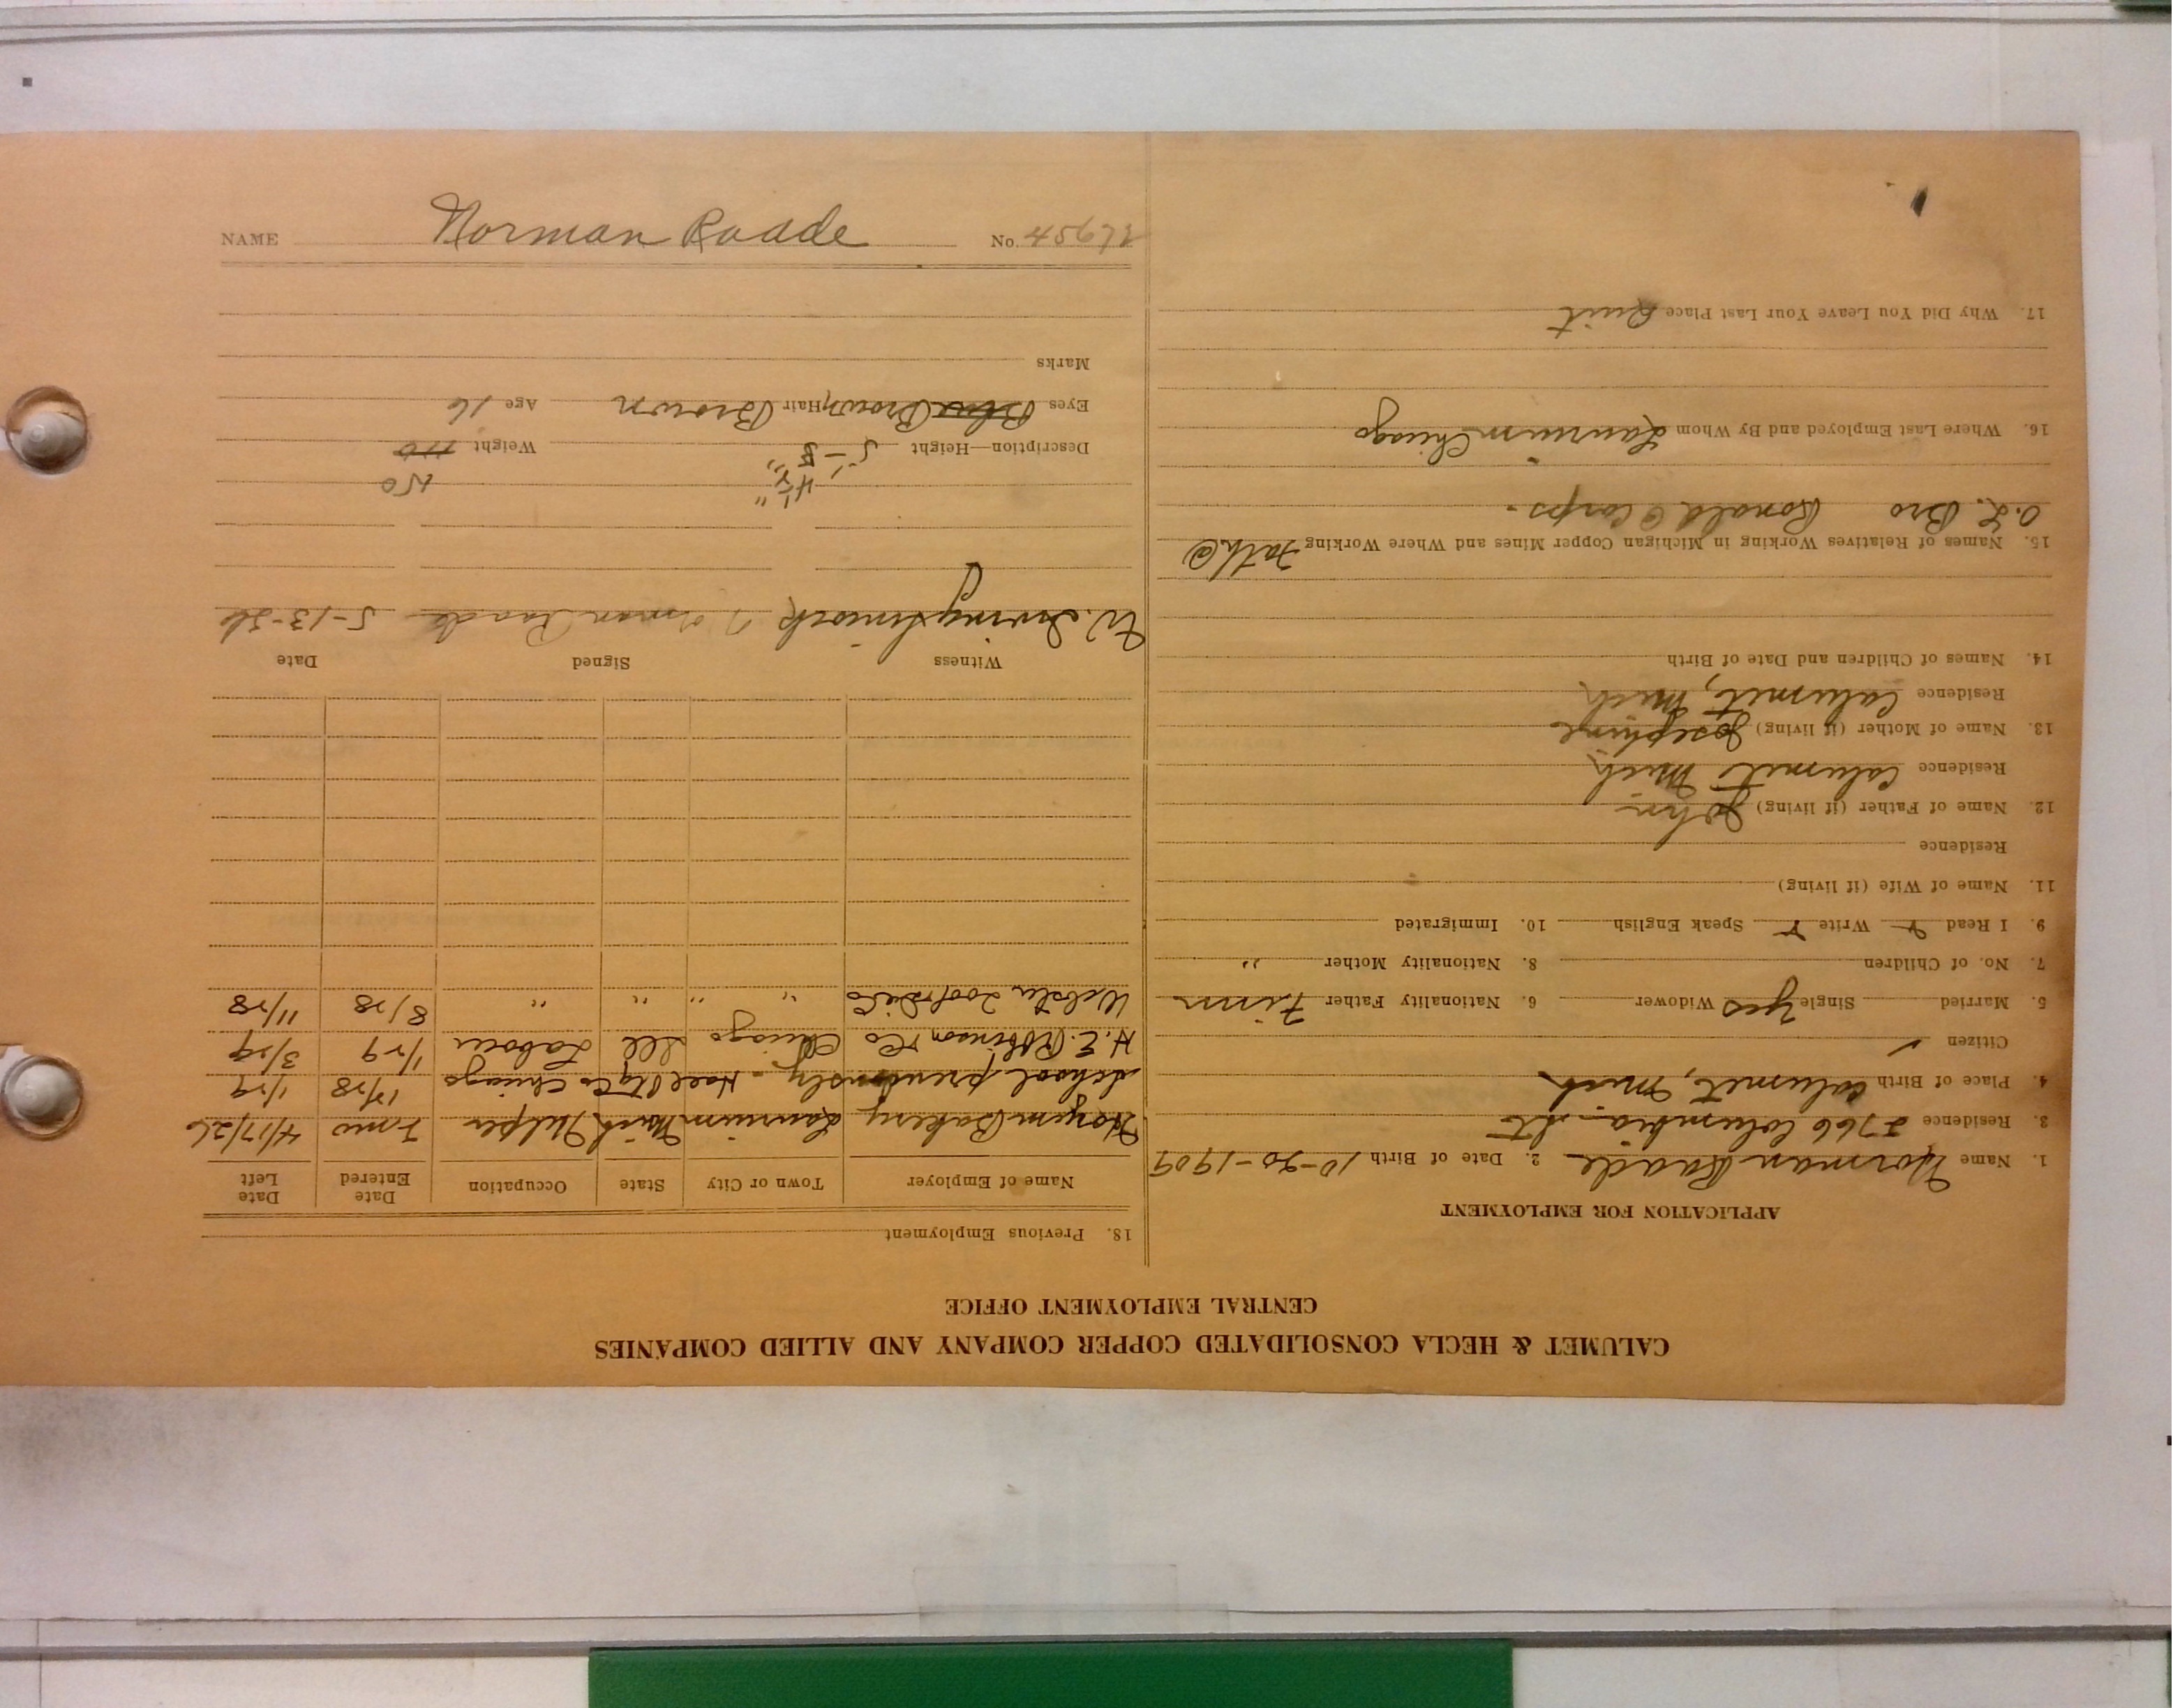 NAME Norman Raade No. 45672
CALUMET & HECLA CONSOLIDATED COPPER COMPANY AND ALLIED COMPANIES
CENTRAL EMPLOYMENT OFFICE
APPLICATION FOR EMPLOYMENT
1. Name Norman Raade 2. Date of Birth 10-20-1909
3. Residence 2766 Columbia St
4. Place of Birth Calumet, Mich
Citizen ✓
5. Married Single Yes Widower 6. Nationality Father Finn
7. No. of Children 8. Nationality Mother "
9. I Read Y Write Y Speak English 10. Immigrated
11. Name of Wife (if living)
Residence
12. Name of Father (if living) John
Residence Calumet Mich
13. Name of Mother (if living) Josephine
Residence Calumet, Mich
14. Names of Children and Date of Birth
15. Names of Relatives Working in Michigan Copper Mines and Where Working Fath @
O.L. Bro Ronald @ Corps.
16. Where Last Employed and By Whom Laurium Chicago
17. Why Did You Leave Your Last Place Quit
18. Previous Employment
Name of Employer Town or City State Occupation Date Entered Date Left
Bakery Laurium Mich Helper 7 mo 4/17/26
School previously - Chicago 12/28 1/29
H.E. Robinson & Co Chicago Ill Labour 1/29 3/29
Webster " " " " 8/28 11/28
Witness Signed Date
W. Irving Norman Raade 5-13-26
4 1/2" 150
Description—Height 5'-8" Weight 110
Eyes Blue Brown Hair Brown Age 16
Marks